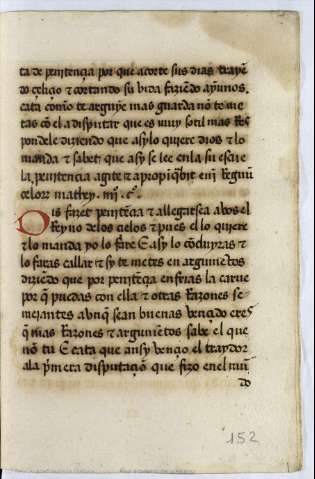 ta de penitençia por que acorte sus dias trayẽ
do çeliçio & cortando su bida faziẽdo ayũnos.
cata como te arguye mas guarda nõ te me
tas cõ el a disputar que es muy sotil mas Res
pondele diziendo que asy lo quiere dios & lo
manda & sabet que asy se lee en la su escrie
la penitencia agite & apropiq̃bit enĩ Regnũ
celorũ mathey. iiij. cº.
Dis fazet penitẽçia & allegarsea a bos el
Reyno delos cielos & pues el lo quiere
& lo manda yo lo fare E asy lo cõcluyras &
lo faras callar & sy te metes en argumẽtos
diziẽdo que por penitẽçia enfrias la carne
por q̃ puedas con ella & otras Razones se
mejantes abñq̃ sean buenas vençido eres
q̃ mas Razones & argumẽtos sabe el que
nõ tu E cata que ansy vençio el traydor
ala p̃mera disputaçiõ que fizo en el mũ
do
152